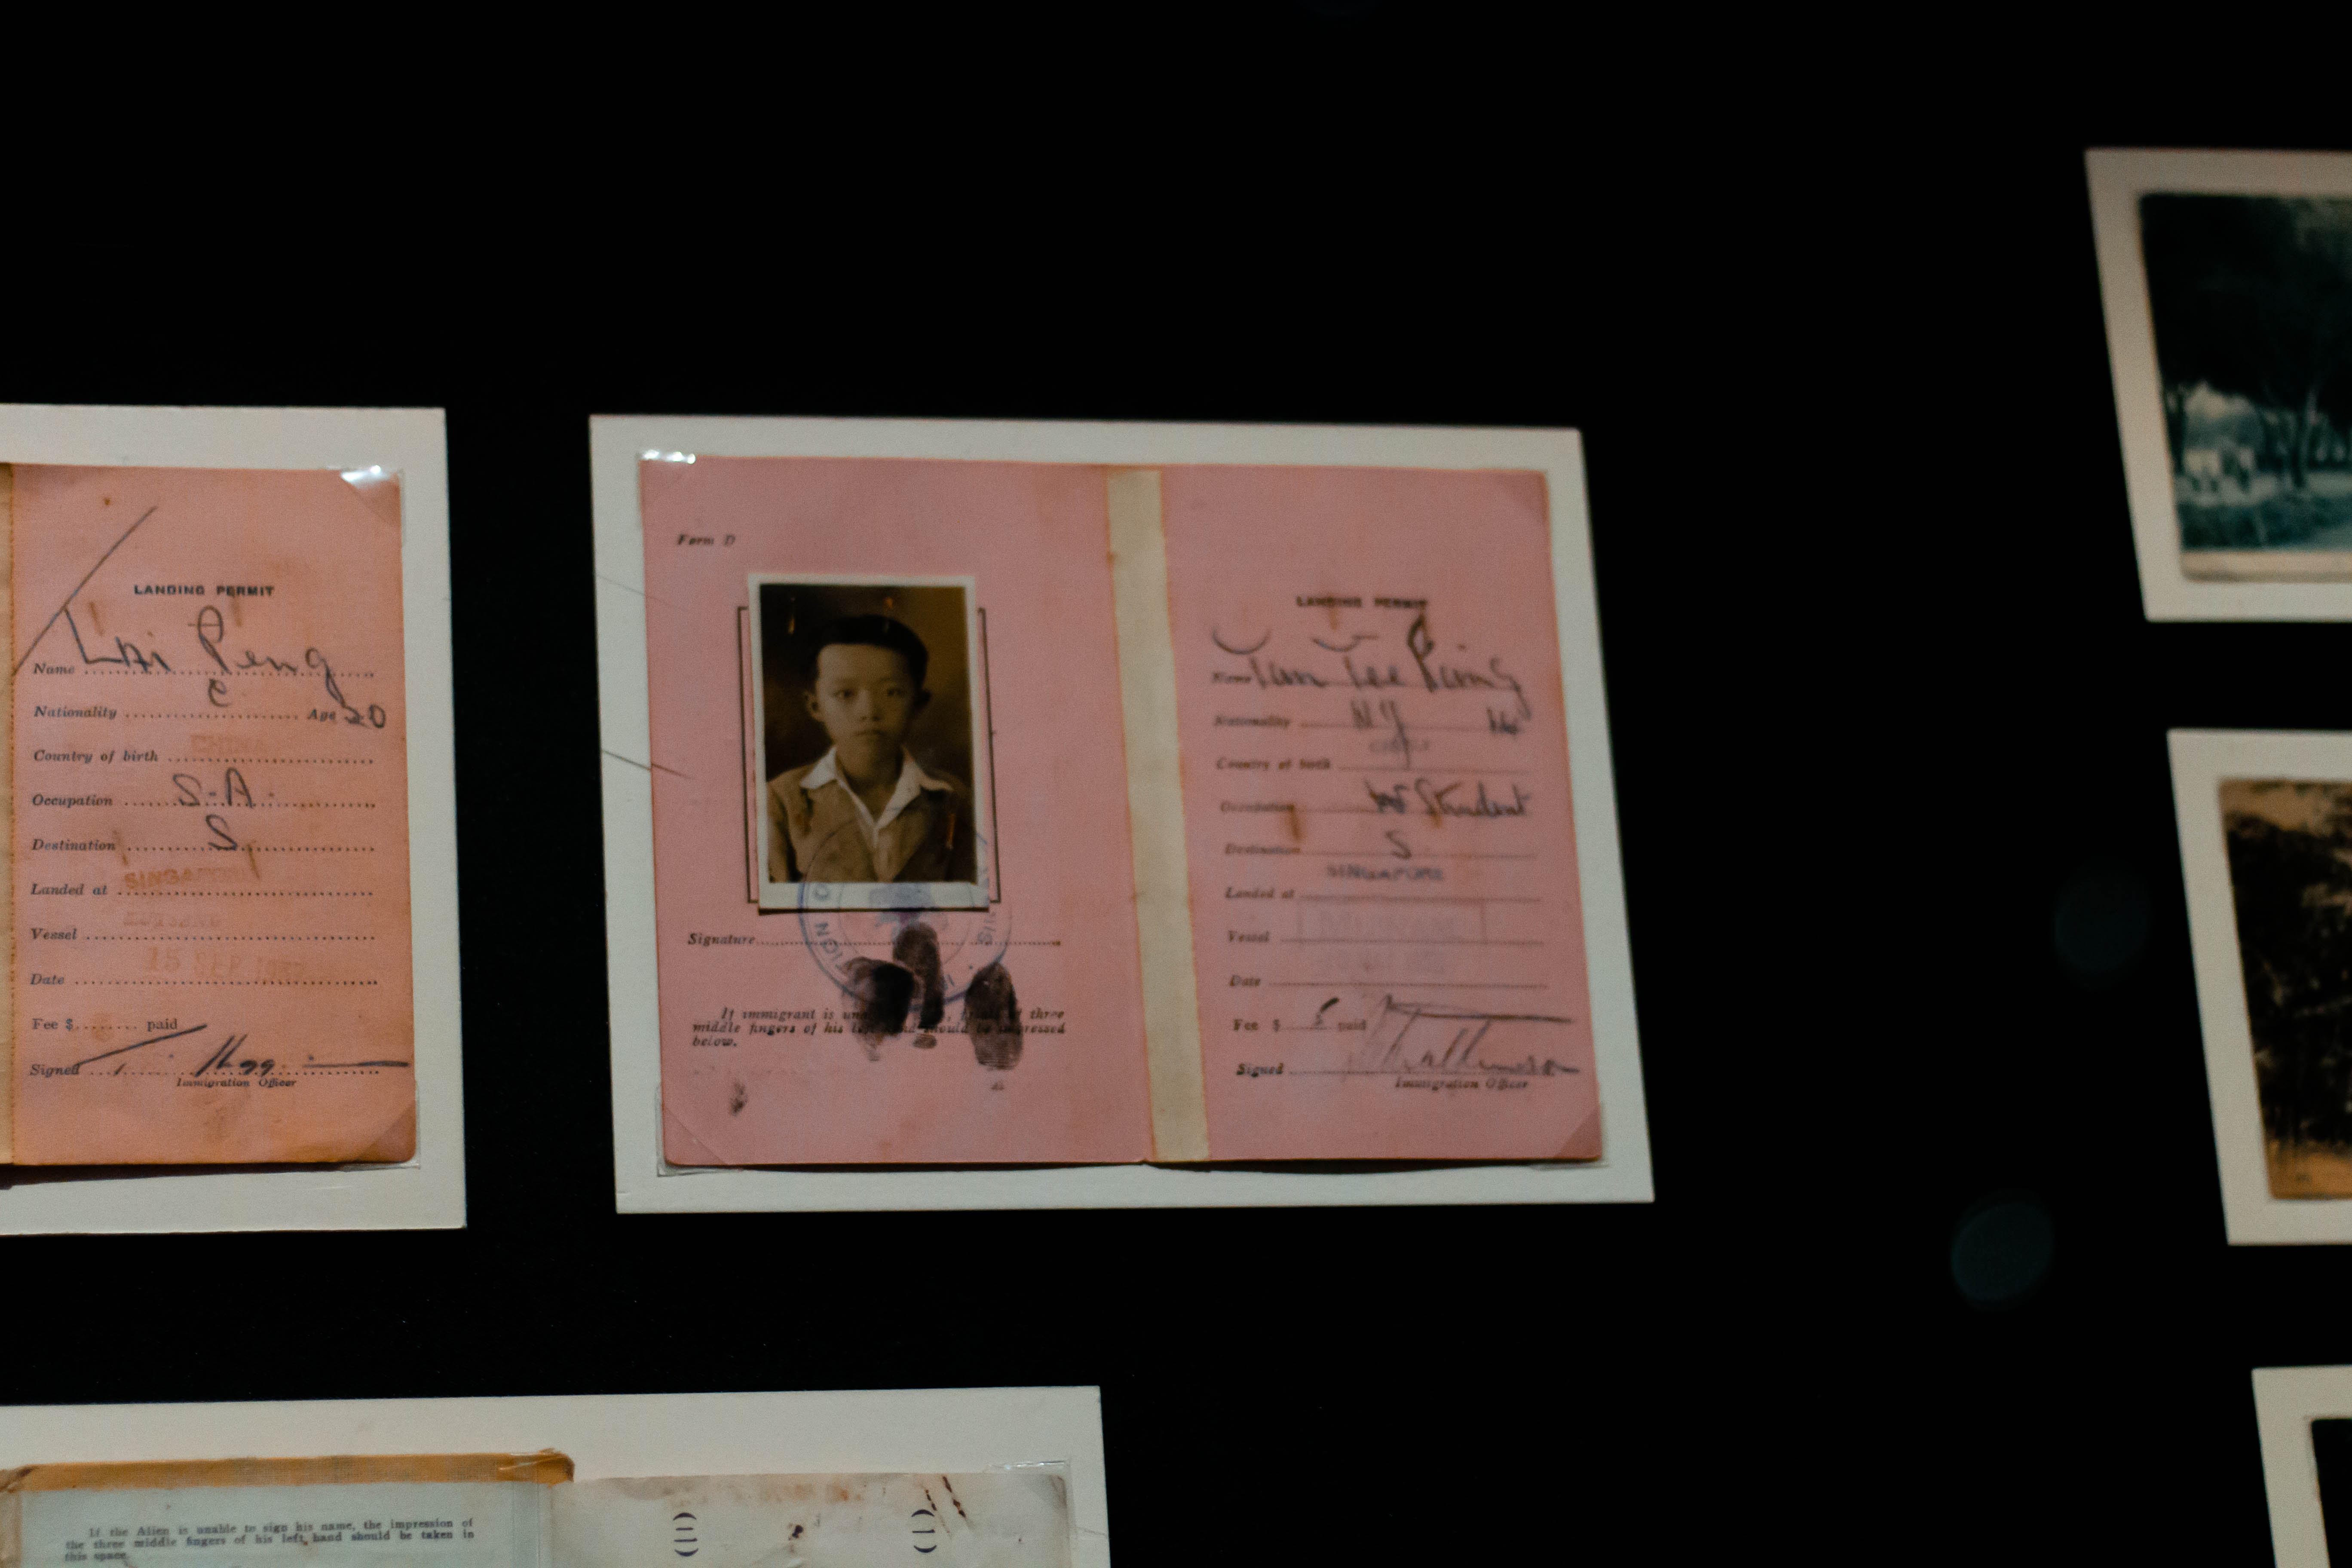 LANDING PERMIT
Name Lai Peng
Nationality C Age 20
Country of birth CHINA
Occupation S.A.
Destination S
Landed at SINGAPORE
Vessel
Date 15 SEP 1937
Fee $ paid
Signed
Immigration Officer
Form D
Signature
If immigrant is three
middle fingers of his left hand should be impressed
below.
LANDING PERMIT
Name Tan Tee
Nationality
Country of birth
Occupation Student
Destination S
Landed at SINGAPORE
Vessel
Date
Fee $ 5 paid
Signed
Immigration Officer
If the Alien is unable to sign his name, the impression of
the three middle fingers of his left hand should be taken in
this space.
(11)
(1)